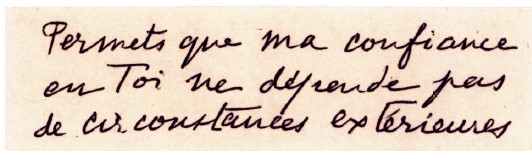 Permets que ma confiance
en Toi ne dépende pas
de circonstances extérieures